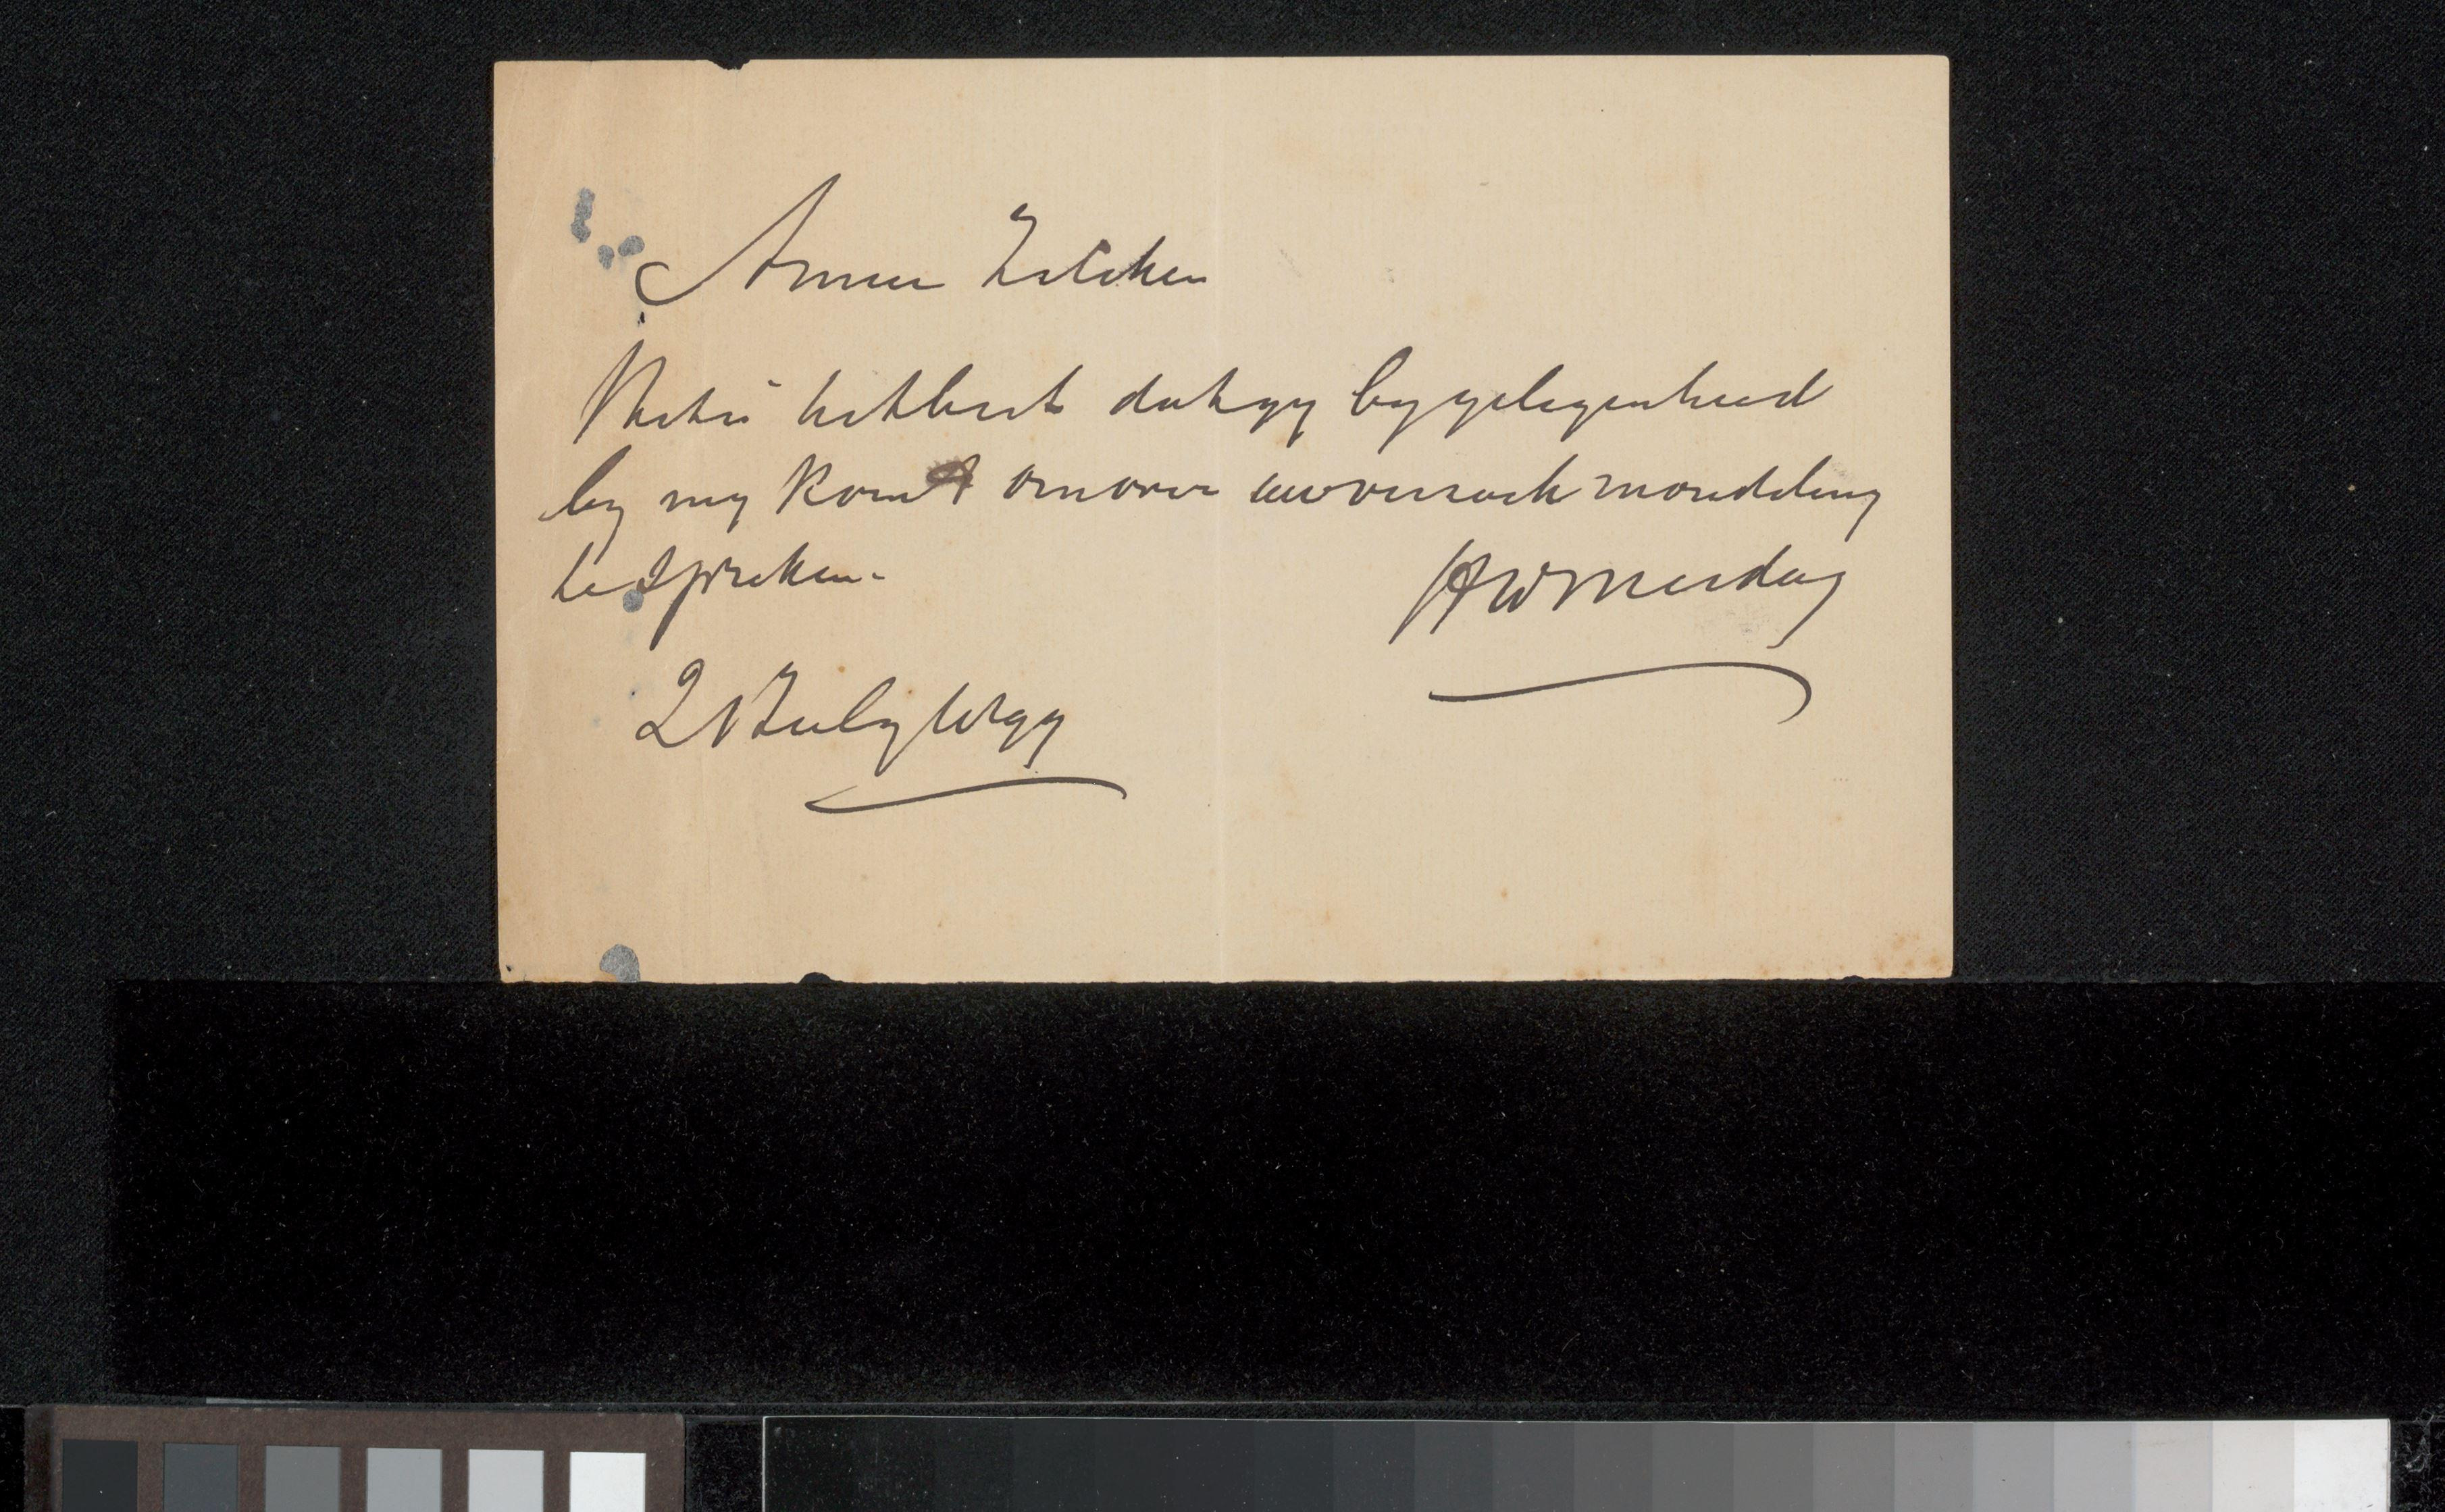 Amice Zilcken
Het is het best dat gy by gelegenheid
by my komt om over uw verzoek mondeling
te spreken.
HWMesdag
21 July 1899